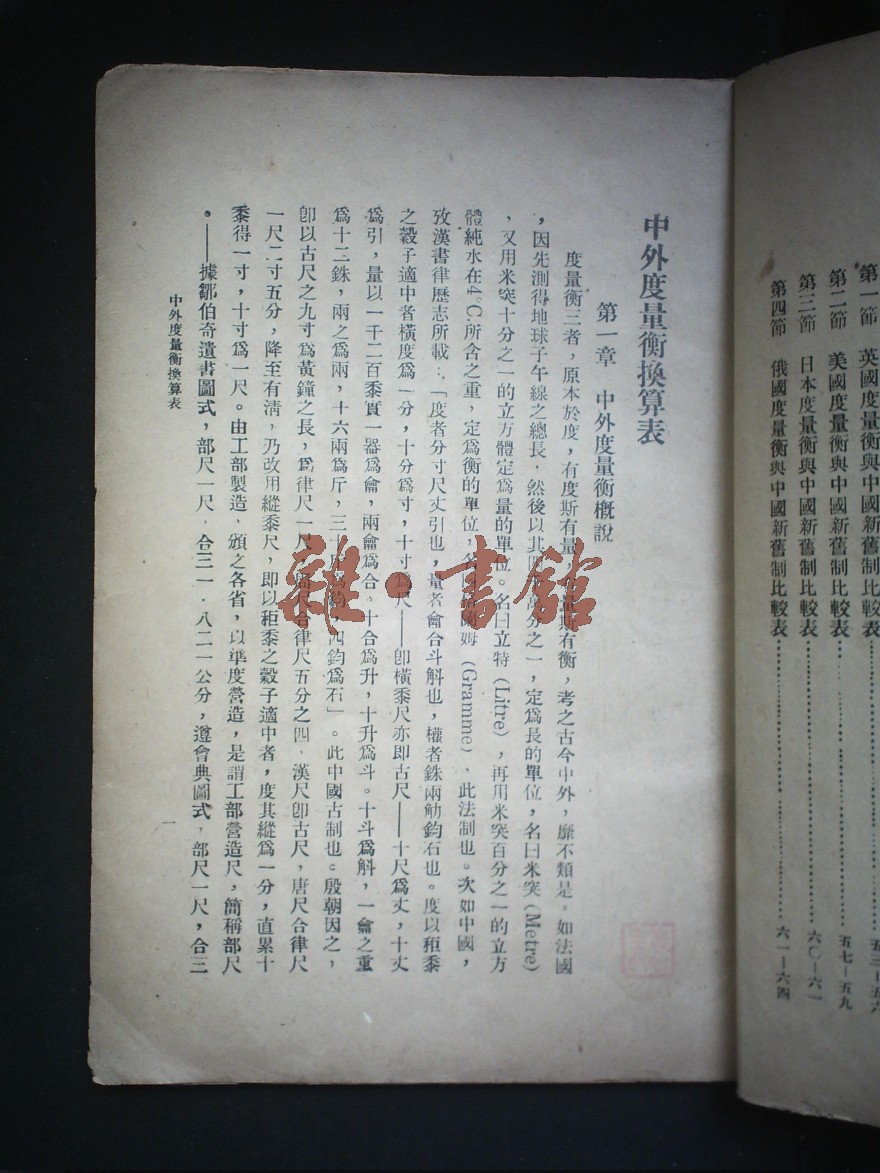 第一節　英國度量衡與中國新舊制比較表……五三—五六
第二節　美國度量衡與中國新舊制比較表……五七—五九
第三節　日本度量衡與中國新舊制比較表……六〇—六一
第四節　俄國度量衡與中國新舊制比較表……六一—六四
中外度量衡換算表
第一章　中外度量衡概說
度量衡三者，原本於度，有度斯有量，斯有衡，考之古今中外，靡不類是。如法國
，因先測得地球子午線之總長，然後以其四分之一，定爲長的單位，名曰米突(Metre)
，又用米突十分之一的立方體定爲量的單位。名曰立特(Litre)，再用米突百分之一的立方
體純水在4°C.所含之重，定爲衡的單位，姆(Gramme)，此法制也。次如中國，
攷漢書律歷志所載：「度者分寸尺丈引也，量者龠合斗斛也，權者銖兩觔鈞石也。度以秬黍
之穀子適中者橫度爲一分，十分爲寸，十寸爲尺——卽橫黍尺亦卽古尺——十尺爲丈，十丈
爲引，量以一千二百黍實一器爲龠，兩龠爲合。十合爲升，十升爲斗。十斗爲斛，一龠之重
爲十二銖，兩之爲兩，十六兩爲斤，三十四鈞爲石」。此中國古制也。殷朝因之，
卽以古尺之九寸爲黃鐘之長，爲律尺一尺，尺合律尺五分之四，漢尺卽古尺，唐尺合律尺
一尺二寸五分，降至有淸，乃改用縱黍尺，即以秬黍之穀子適中者，度其縱爲一分，直累十
黍得一寸，十寸爲一尺。由工部製造，頒之各省，以準度營造，是謂工部營造尺，簡稱部尺
。——據鄒伯奇遺書圖式，部尺一尺，合三一．八二一公分，遵會典圖式，部尺一尺，合三
中外度量衡換算表
一
雜·書館